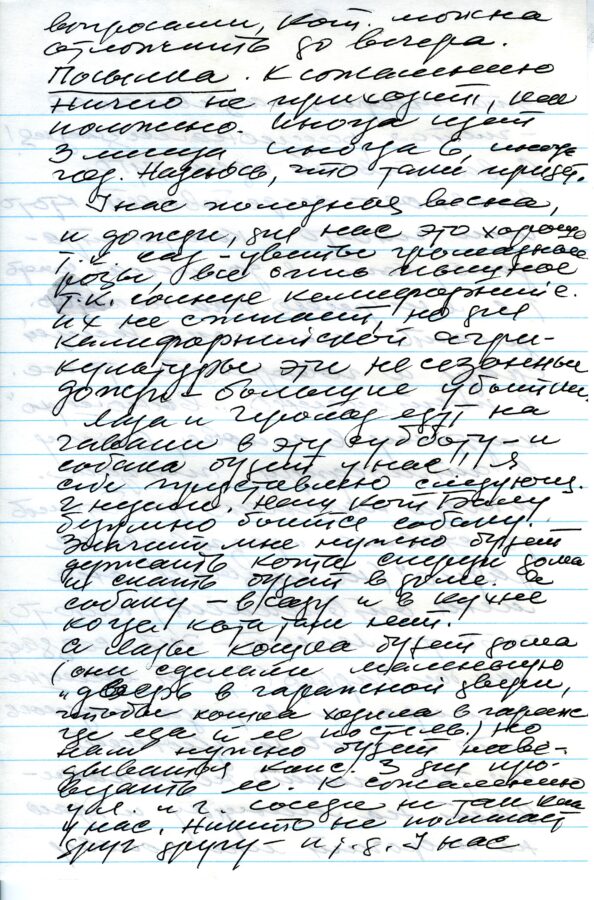 вопросами, кот. можно
отложить до вечера.
Посылка. К сожалению
ничего не приходит, как
положено. Иногда идет
3 месяца иногда 6, иногда
год. Надеюсь, что таки придет.
У нас холодная весна,
и дожди, для нас это хорошо
т.к. сад - цветы громадные
розы, все очень пышное
т.к. солнце калифорнийс.
их не сжигает, но для
калифорнийской агри-
культуры эти не сезонные
дожди - большие убытки.
Ляля и едут на
Гаваи в эту субботу - и
собака будет у нас!! Я
себе представляю следующ.
2 недели. Наш кот
безумно боится собаку.
Значит мне нужно будет
держать кота следуя дома
и спать будет в доме. А
собаку - в саду и в кухне
когда кота там нет.
А Лялы кошка будет дома
(они сделали маленькую
"дверь в гаражной двери,
чтобы кошка ходила в гараж
где еда и ее постель.) но
нам нужно будет наве-
дываться кажд. 3 дня про-
ведать ее. К сожалению
у л. и г. соседи не так как
у нас. Никто не помогает
друг другу - и т.д. У нас